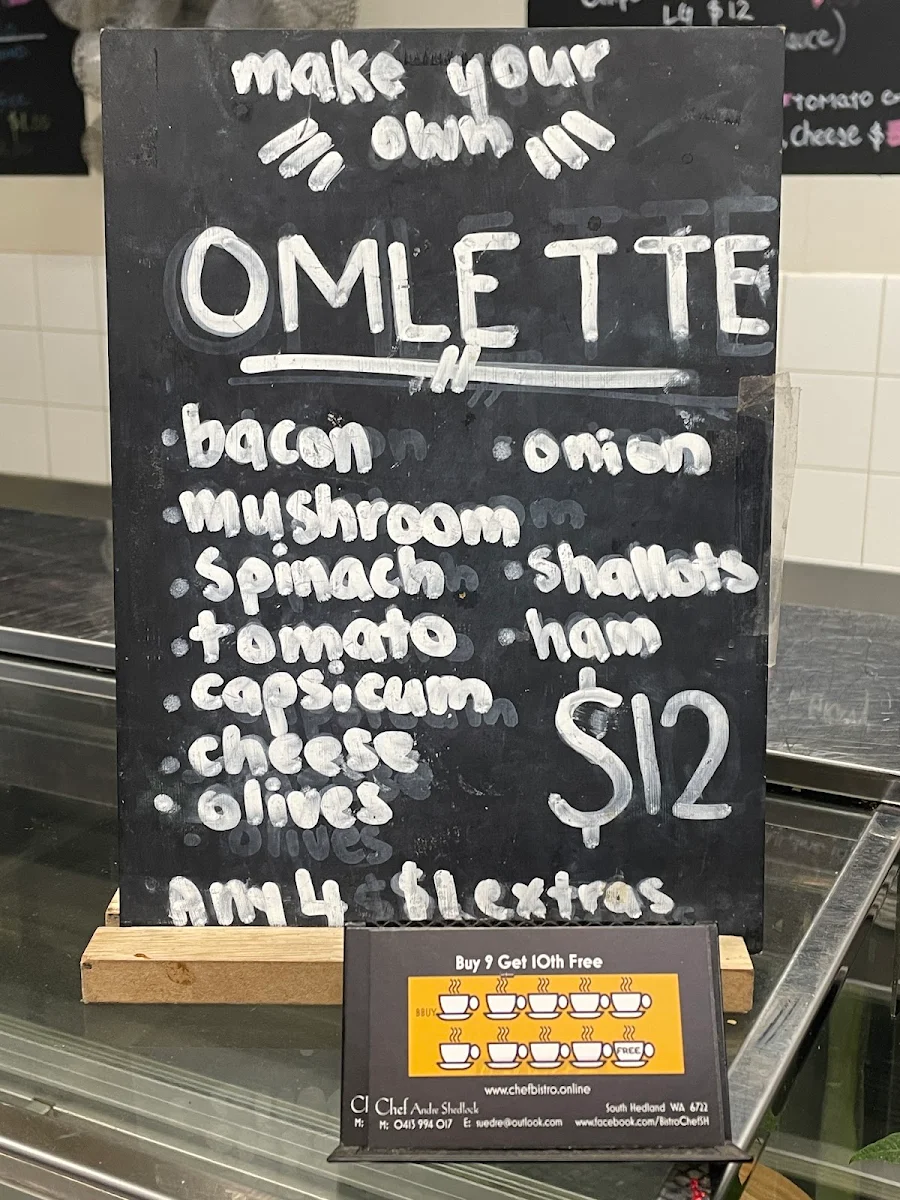 LG $12
make your
own
OMLETTE
bacon
onion
mushroom
spinach
shallots
tomato
ham
capsicum
cheese
$12
olives
Any 4 $1 extras
tomato
cheese $
Buy 9 Get 10th Free
BBUY
FREE
www.chefbistro.online
Chef Andre Shedlock
South Hedland WA 6722
M: 0413 994 017 E: suedre@outlook.com www.facebook.com/BistroChefSH